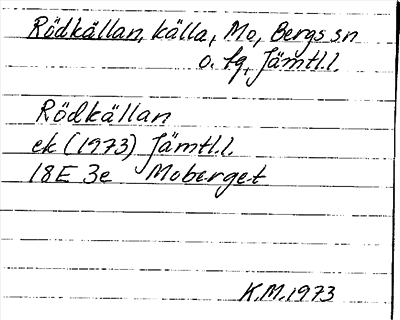 Rödkällan, källa, Mo, Bergs sn
o. fg, Jämtl.l.
Rödkällan
ek (1973) Jämtl.l.
18E 3e Moberget
K.M. 1973